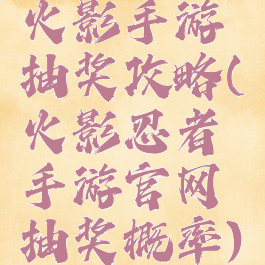 火影手游
抽奖攻略(
火影忍者
手游官网
抽奖概率)